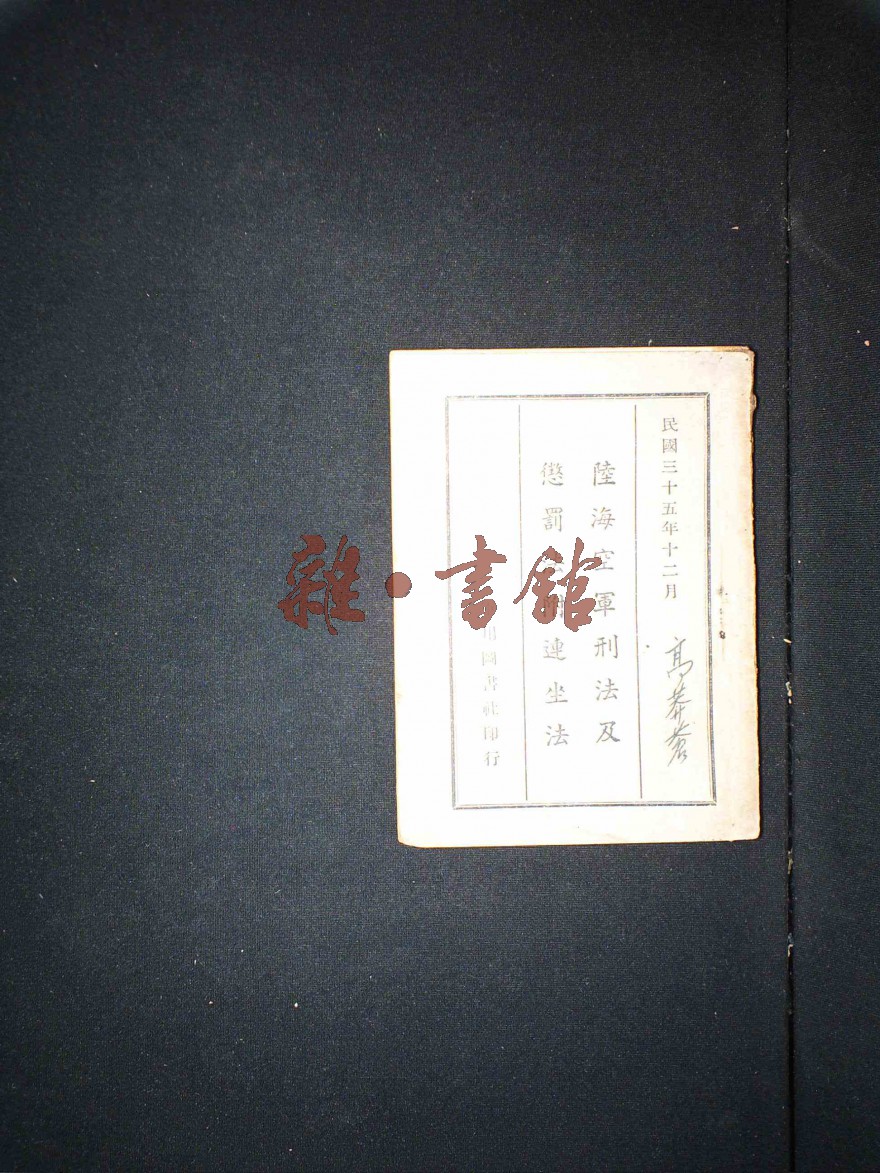 民國三十五年十二月
高莽蒼
陸海空軍刑法及
懲罰法附連坐法
用圖書社印行
雜·書館